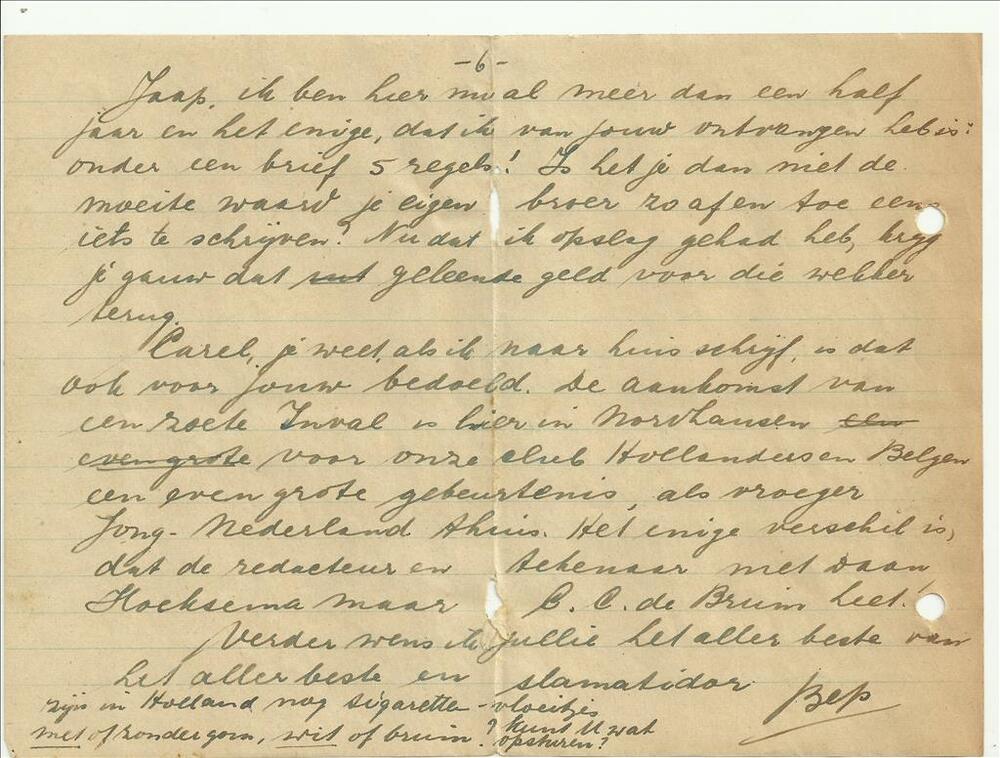 -6-
Jaap, ik ben hier nu al meer dan een half
jaar en het enige, dat ik van jouw ontvangen heb is:
onder een brief 5 regels! Is het je dan niet de
moeite waard je eigen broer zo af en toe eens
iets te schrijven? Nu dat ik opslag gehad heb, kryg
je gauw dat geleende geld voor die wekker
terug.
Carel, je weet, als ik naar huis schrijf, is dat
ook voor jouw bedoeld. De aankomst van
een zoete Inval is hier in Nordhausen een
even grote voor onze club Hollanders en Belgen
een even grote gebeurtenis, als vroeger
Jong-Nederland thuis. Het enige verschil is,
dat de redacteur en tekenaar niet Daan
Hoeksema maar C. C. de Bruin heet!
Verder wens ik jullie het aller beste van
het aller beste en slamatidor
Bep
zijn in Holland nog sigaretten-vloeitjes
met of zonder gom, wit of bruin? Kunt U wat
opsturen?